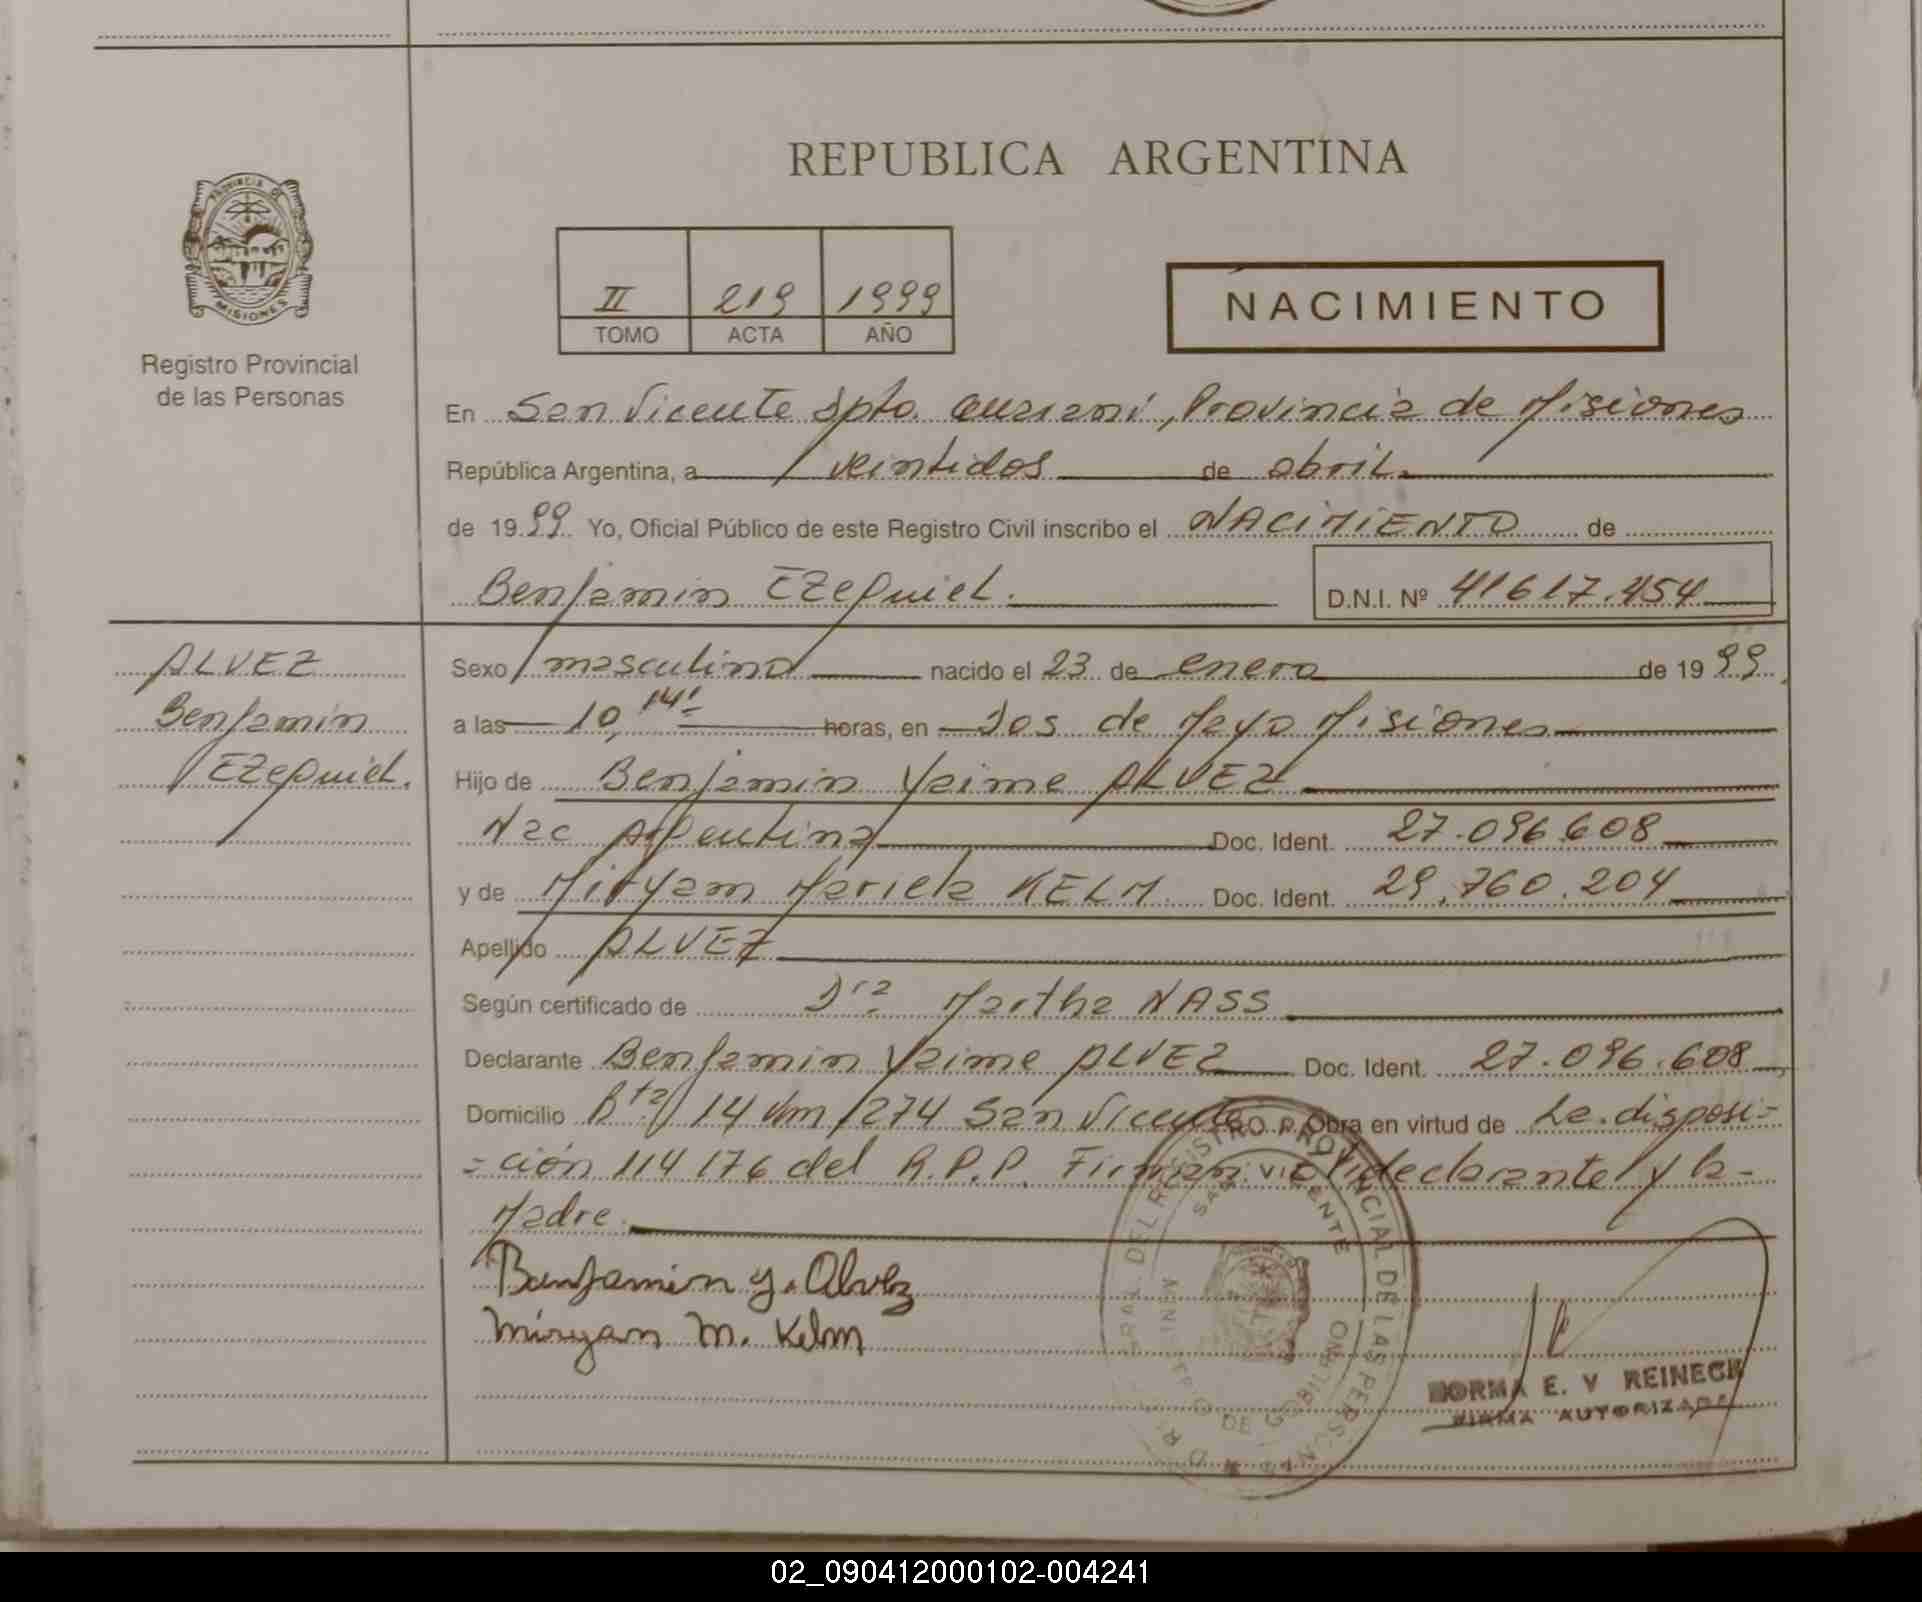 REPUBLICA ARGENTINA
PROVINCIA DE
MISIONES
Registro Provincial
de las Personas
II 219 1999
TOMO ACTA AÑO
NACIMIENTO
En San Vicente Dpto. Guaraní, Provincia de Misiones
República Argentina, a veintidos de abril.
de 1999 Yo, Oficial Público de este Registro Civil inscribo el NACIMIENTO de
Benjamin Ezequiel. D.N.I. Nº 41617.454
ALVEZ
Benjamin
Ezequiel.
Sexo masculino nacido el 23 de enero de 1999
a las 10,14' horas, en Dos de Mayo Misiones
Hijo de Benjamin Yaime ALVEZ
Nac Argentina Doc. Ident. 27.096.608
y de Miryam Mariela KELM. Doc. Ident. 29.760.204
Apellido ALVEZ
Según certificado de Dra Martha NASS
Declarante Benjamin Yaime ALVEZ Doc. Ident. 27.096.608
Domicilio Rta 14 Km 1274 San Vicente Obra en virtud de La disposi-
-ción 114176 del R.P.P. Firman: el declarante y la-
Madre.
Benjamin y. Alvez
Miryam M. Kelm
REGISTRO PROVINCIAL DE LAS PERSONAS
SAN VICENTE
MINISTERIO DE GOBIERNO
NORMA E. V REINECK
FIRMA AUTORIZADA
02_090412000102-004241